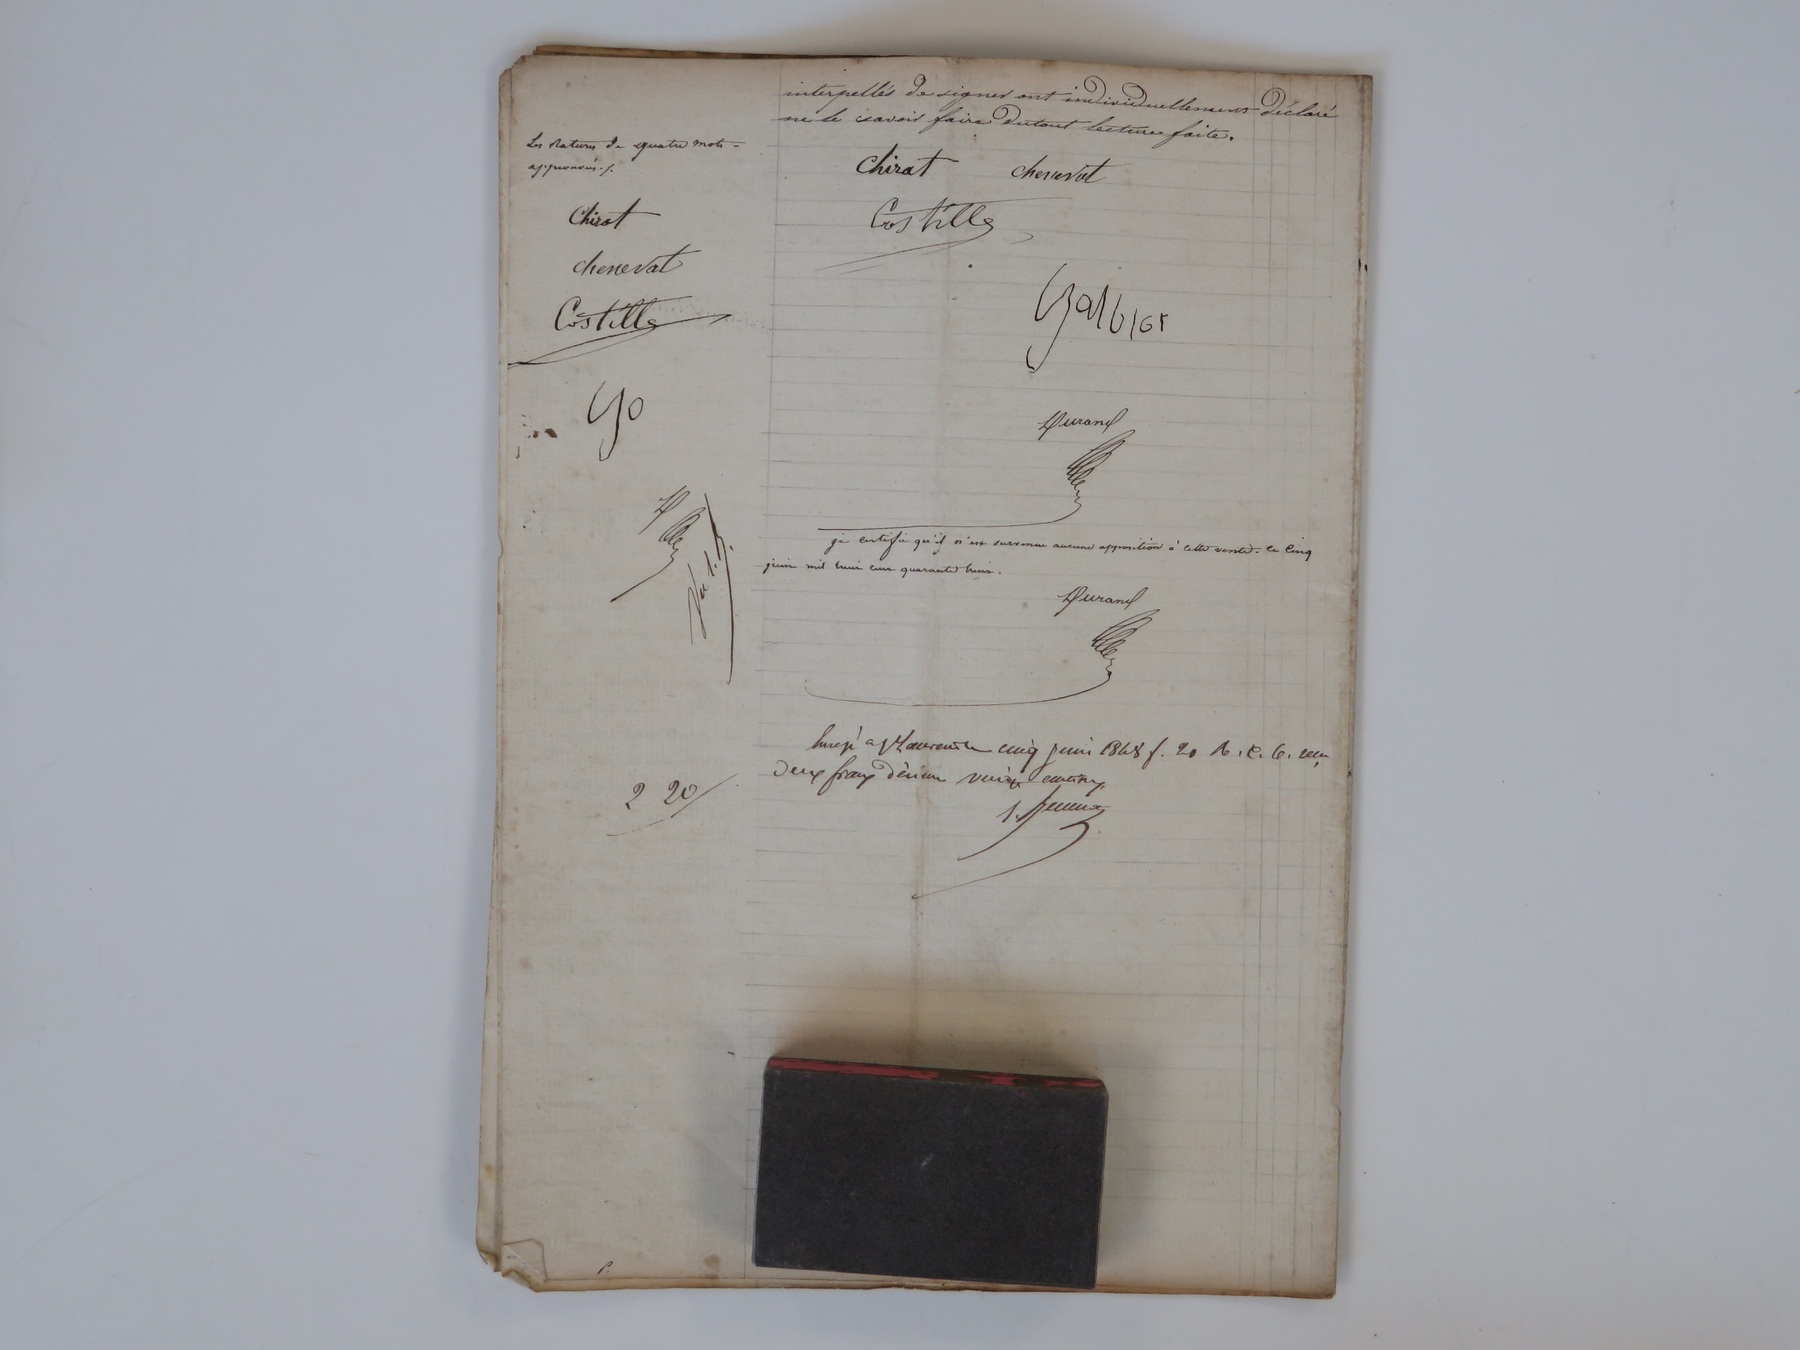 interpellés de signer ont individuellement déclaré
ne le savoir faire dutout lecture faite.
Les ratures de quatre mots
approuvées ./.
Chirat chenevat
Costille
Chirat
chenevat
Costille
Galbier
Durand
je certifie qu'il n'est survenu aucune opposition à cette vente. ce cinq
juin mil huit cent quarante huit.
Durand
Enregé a St Laurent le cinq juin 1848 f. 20 R. C. 6. reçu
deux francs décime vingt centimes
2 20